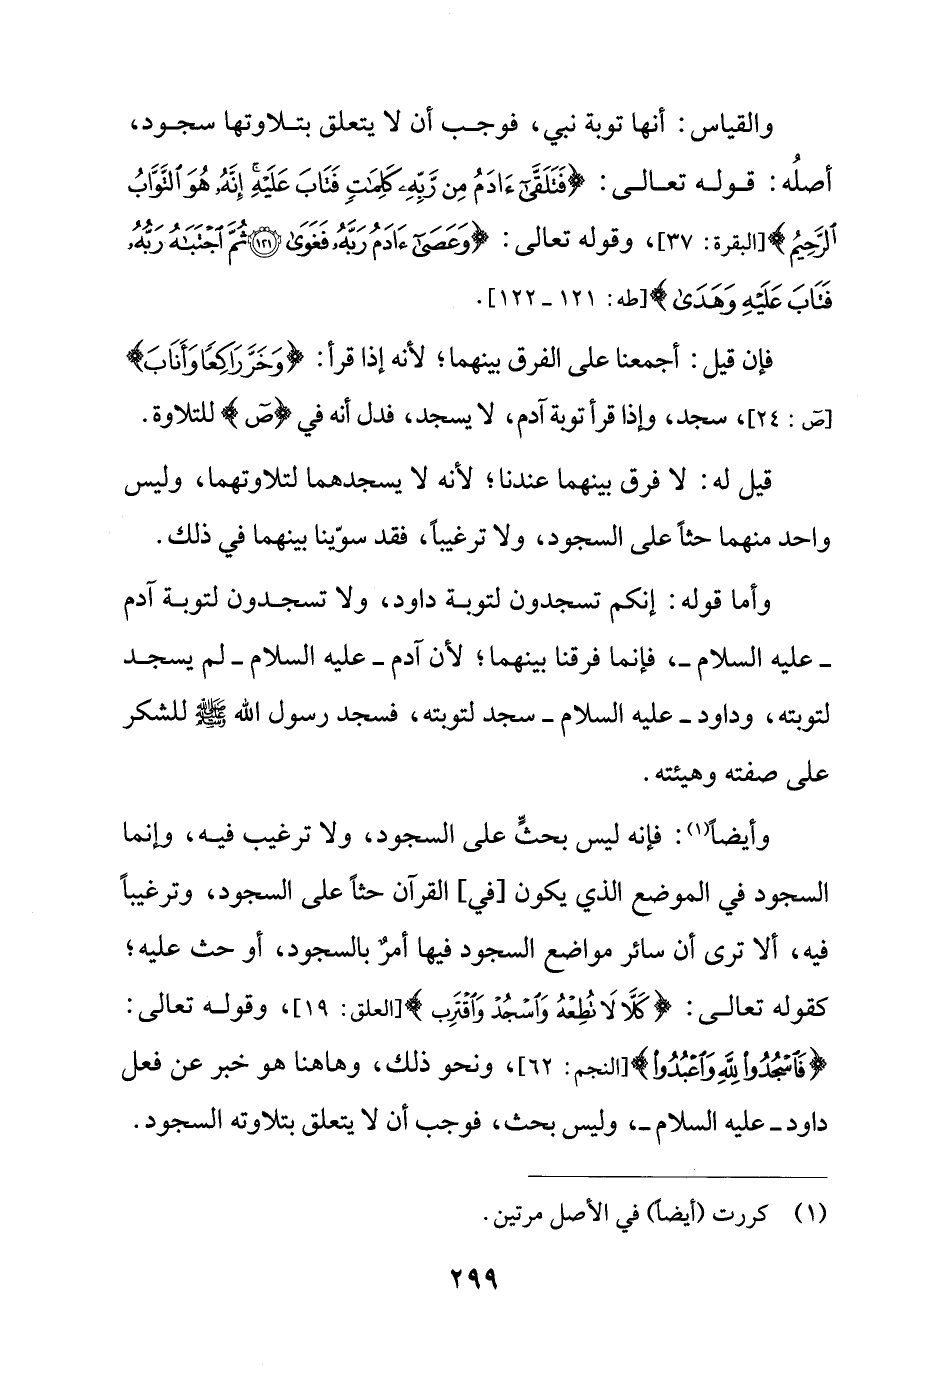 والقياس: أنها توبة نبي، فوجب أن لا يتعلق بتلاوتها سجود،
أصلُه: قوله تعالى: ﴿فَتَلَقَّىٰٓ ءَادَمُ مِن رَّبِّهِۦ كَلِمَٰتٖ فَتَابَ عَلَيۡهِۚ إِنَّهُۥ هُوَ ٱلتَّوَّابُ
ٱلرَّحِيمُ﴾[البقرة: ٣٧]، وقوله تعالى: ﴿وَعَصَىٰٓ ءَادَمُ رَبَّهُۥ فَغَوَىٰ ١٢١ ثُمَّ ٱجۡتَبَٰهُ رَبُّهُۥ
فَتَابَ عَلَيۡهِ وَهَدَىٰ﴾[طه: ١٢١ ـ ١٢٢].
فإن قيل: أجمعنا على الفرق بينهما؛ لأنه إذا قرأ: ﴿وَخَرَّ رَاكِعٗا وَأَنَابَ﴾
[صٓ: ٢٤]، سجد، وإذا قرأ توبة آدم، لا يسجد، فدل أنه في ﴿صٓ﴾ للتلاوة.
قيل له: لا فرق بينهما عندنا؛ لأنه لا يسجدهما لتلاوتهما، وليس
واحد منهما حثاً على السجود، ولا ترغيباً، فقد سوّينا بينهما في ذلك.
وأما قوله: إنكم تسجدون لتوبة داود، ولا تسجدون لتوبة آدم
ـ عليه السلام ـ، فإنما فرقنا بينهما؛ لأن آدم ـ عليه السلام ـ لم يسجد
لتوبته، وداود ـ عليه السلام ـ سجد لتوبته، فسجد رسول الله ﷺ للشكر
على صفته وهيئته.
وأيضاً(١): فإنه ليس بحثٍّ على السجود، ولا ترغيب فيه، وإنما
السجود في الموضع الذي يكون [في] القرآن حثاً على السجود، وترغيباً
فيه، ألا ترى أن سائر مواضع السجود فيها أمرٌ بالسجود، أو حث عليه؛
كقوله تعالى: ﴿كَلَّا لَا تُطِعۡهُ وَٱسۡجُدۡۤ وَٱقۡتَرِب﴾[العلق: ١٩]، وقوله تعالى:
﴿فَٱسۡجُدُواْ لِلَّهِ وَٱعۡبُدُواْ﴾[النجم: ٦٢]، ونحو ذلك، وهاهنا هو خبر عن فعل
داود ـ عليه السلام ـ، وليس بحث، فوجب أن لا يتعلق بتلاوته السجود.
(١) كررت (أيضاً) في الأصل مرتين.
٢٩٩